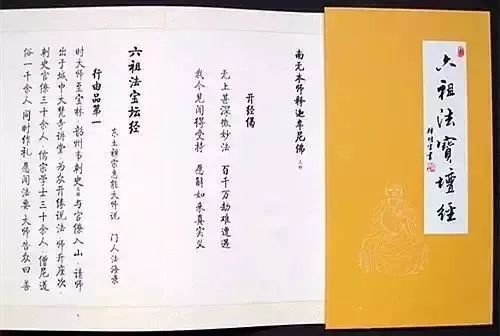 六祖法寶壇經
南无本师释迦牟尼佛
开经偈
无上甚深微妙法 百千万劫难遭遇
我今见闻得受持 愿解如来真实义
六祖法宝坛经
东土禅宗惠能大师说 门人法海录
行由品第一
时大师至宝林·韶州韦刺史与官僚入山·请师
出于城中大梵寺讲堂·为众开缘说法 师升座次·
刺史官僚三十余人·儒宗学士三十余人·僧尼道
俗一千余人 同时作礼 愿闻法要 大师告众曰善